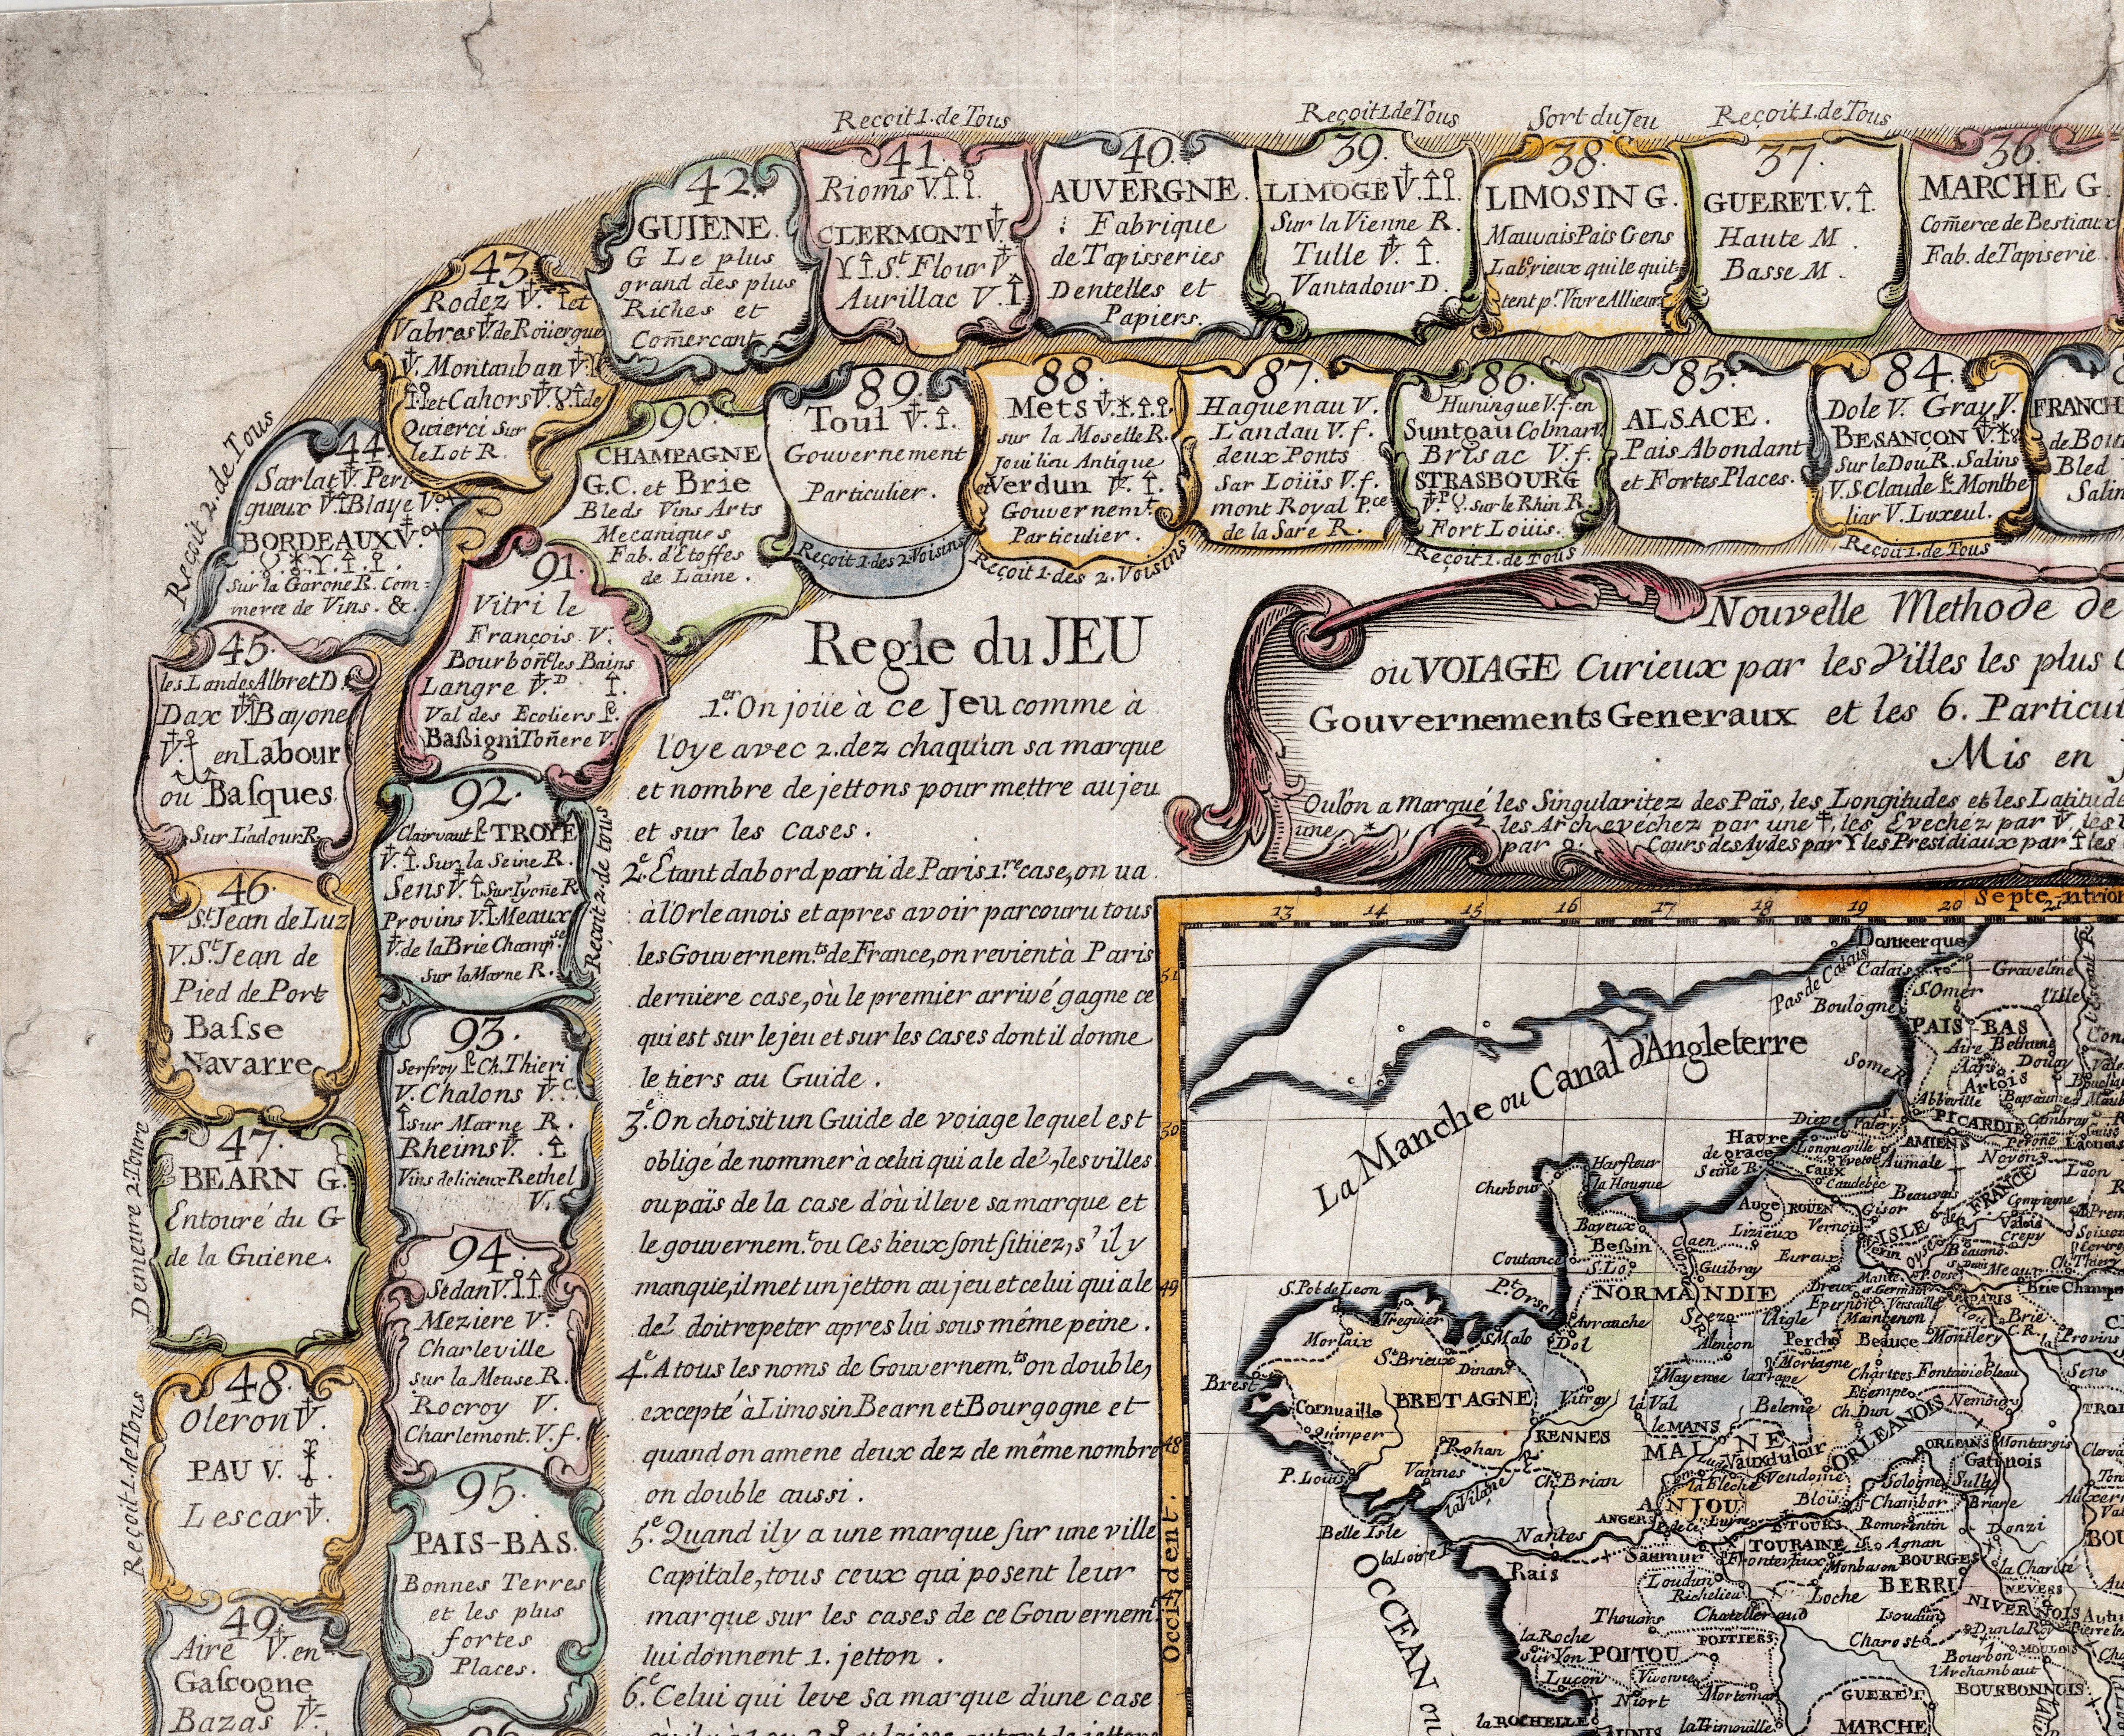 Reçoit 1. de Tous
41.
Rioms V.
CLERMONT V.
St. Flour V
Aurillac V.
40.
AUVERGNE.
Fabrique
de Tapisseries
Dentelles et
Papiers.
Reçoit 1. de Tous
39.
LIMOGE V.
Sur la Vienne R.
Tulle V.
Vantadour D.
Sort du Jeu
38.
LIMOSIN G.
Mauvais Païs Gens
Labrieux qui le quit-
tent pr. Vivre Allieurs
Reçoit 1. de Tous
37.
GUERET. V.
Haute M.
Basse M.
36.
MARCHE G.
Com̃erce de Bestiaux
Fab. de Tapiserie.
42.
GUIENE.
G Le plus
grand des plus
Riches et
Com̃ercant
43.
Rodez V. et
Vabres V. de Roüergue
V. Montauban V.
et Cahors V. de
Quierci Sur
le Lot R.
Reçoit 2. de Tous
44.
Sarlat V. Peri-
gueux V. Blaye V.
BORDEAUX V.
Sur la Garone R. Com:
merce de Vins. &c.
45.
les Landes Albret D.
Dax V. Bayone
V. en Labour
ou Basques.
Sur L'adour R.
46.
St. Jean de Luz
V. St. Jean de
Pied de Port
Basse
Navarre.
47.
BEARN G.
Entouré du G
de la Guiene.
Demeure 2 Tours
48.
Oleron V.
PAU V.
Lescar V.
Reçoit 1. de Tous
49.
Aire V. en
Gascogne
Bazas V.
84.
Dole V. Gray V.
BESANÇON V.
Sur le Dou R. Salins
V. S. Claude Montbe
liar V. Luxeul.
Reçoit 1. de Tous
FRANCH
de Bou
Bled
Salin
85.
ALSACE.
Pais Abondant
et Fortes Places.
86.
Huningue V. f. en
Suntgau Colmar V.
Brisac V. f.
STRASBOURG
V. sur le Rhin R.
Fort Loüis.
Reçoit 1. de Tous
87.
Haguenau V.
Landau V. f.
deux Ponts
Sar Loüis V. f.
mont Royal P.ce
de la Sare R.
88.
Mets V.
sur la Moselle R.
Joui lieu Antique
et Verdun V.
Gouvernemt.
Particulier.
Reçoit 1. des 2. Voisins
89.
Toul V.
Gouvernement
Particulier.
Reçoit 1. des 2. Voisins
90.
CHAMPAGNE
G. C. et Brie
Bleds Vins Arts
Mecaniques
Fab. d'Etoffes
de Laine.
91.
Vitri le
François. V.
Bourbon̄e les Bains
Langre V. D
Val des Ecoliers
Bassigni Ton̄ere V.
92.
Clairvaut TROYE
V. Sur la Seine R.
Sens V. Sur l'yon̄e R
Provins V. Meaux
V. de la Brie Champse.
Sur la Marne R.
Reçoit 2. de tous
93.
Serfroy Ch. Thieri
V. Chalons V. C.
sur Marne R.
Rheims V.
Vins delicieux Rethel
V.
94.
Sedan V.
Meziere V.
Charleville
sur la Meuse R.
Rocroy V.
Charlemont. V. f.
95.
PAIS-BAS.
Bonnes Terres
et les plus
fortes
Places.
Regle du JEU
1.er On joüe à ce Jeu comme à
l'Oye avec 2. dez chaqu'un sa marque
et nombre de jettons pour mettre au jeu
et sur les cases.
2.e Êtant dabord parti de Paris 1.re case, on va
à l'Orleanois et apres avoir parcouru tous
les Gouvernem.ts de France, on revient à Paris
derniere case, où le premier arrivé gagne ce
qui est sur le jeu et sur les cases dont il donne
le tiers au Guide.
3.e On choisit un Guide de voiage lequel est
obligé de nommer à celui qui a le dez, les villes
ou païs de la case d'où il leve sa marque et
le gouvernem.t ou ces lieux sont sitüez, s'il y
manque, il met un jetton au jeu et celui qui a le
dez doit repeter apres lui sous même peine.
4.e A tous les noms de Gouvernem.ts on double,
excepté à Limosin Bearn et Bourgogne et
quand on amene deux dez de même nombre
on double aussi.
5.e Quand il y a une marque sur une ville
Capitale, tous ceux qui posent leur
marque sur les cases de ce Gouvernem.t
lui donnent 1. jetton.
6.e Celui qui leve sa marque d'une case
Nouvelle Methode de
ou VOIAGE Curieux par les Villes les plus
Gouvernements Generaux et les 6. Particul
Mis en
Ou l'on a marqué les Singularitez des Païs, les Longitudes et les Latitude
une * les Archevéchez par une les Evechez par V, les
par Cours des Aydes par Y les Presidiaux par les
Septentrion
13 14 15 16 17 18 19 20 21
51
50
49
48
47
Occident.
La Manche ou Canal d'Angleterre
Pas de Calais
Donkerque
Calais
Graveline
Boulogne
S. Omer
l'Isle
PAIS BAS
Aire
Bethune
Douay
Artois
Some R.
Abbeville
Bapaume
Cambray
Diepe
S. Valery
PICARDIE
AMIENS
Perone
Havre
de grace
Seine R.
Longueville
Yvetot
Caux
Caudebec
Aumale
Noyon
Laon
Harfleur
la Haugue
Cherbour
Beauvais
Compiegne
Auge
ROUEN
Gisor
Vernon
ISLE de FRANCE
Valois
Crepy
Bayeux
Bessin
Caen
Lizieux
Evraix
Coutance
S. Lo
Guibray
Dreux
Meaux
PARIS
Versaille
Brie Champ
S. Pol de Leon
Pt. Orson
NORMANDIE
Avranche
Seez
l'Aigle
Maintenon
Treguier
S. Malo
Dol
Morlaix
St. Brieux
Dinan
Alençon
Perche
Beauce
Montlery
Provins
Mortagne
la Trape
Chartres
Fontainebleau
Sens
Brest
Mayenne
BRETAGNE
Vitray
la Val
Beleme
Etempe
Ch. Dun
Nemours
Cornuaille
Quimper
le MANS
MAINE
ORLEANOIS
RENNES
Rohan
Vannes
P. Louis
Vauxduloir
Vendome
ORLEANS
Montargis
Gatinois
la Vilaine R.
Ch. Brian
la Fleche
Sologne
Sully
ANJOU
ANGERS
Blois
Chambor
Briare
Belle Isle
la Loire R.
Nantes
Saumur
TOURS
TOURAINE
Romorentin
S. Agnan
Donzi
Rais
Frontevraux
Monbason
BOURGES
la Charité
Loudun
Richelieu
Loche
BERRI
NEVERS
NIVERNOIS
Thouars
Chatelleraud
Issoudun
Dun le Roy
la Roche
sur Yon
POITOU
POITIERS
Charost
Bourbon
l'Archambaut
Luçon
Vivonne
BOURBONNOIS
Niort
Mortemar
GUERET
la ROCHELLE
la Trimouille
MARCHE
OCCEAN ou